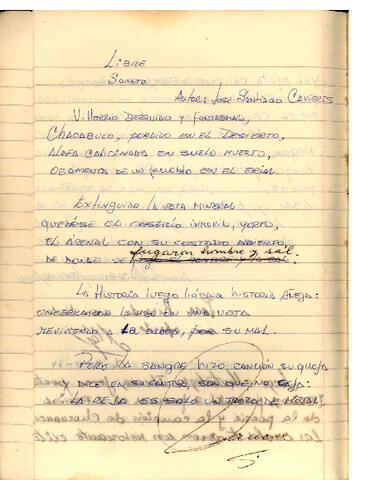 LIBRE
SONETO
AUTOR: JOSÉ SANTIAGO CAVIERES
VILLORRIO DERRUIDO Y FANTASMAL,
CHACABUCO, PERDIDO EN EL DESIERTO,
ALDEA CALICINADA EN SUELO MUERTO,
OSAMENTA DE UN PUEBLO EN EL ERIAL.
EXTINGUIDA LA VETA MINERAL
QUEDÓSE EL CASERÍO INMOVIL, YERTO,
EL ARENAL CON SU COSTADO ABIERTO,
DE DONDE SE fugaron hombre y sal.
LA HISTORIA LUEGO HISTORIA AÑEJA:
LA
REVIVIENDO A LA ALDEA, POR SU MAL.
PERO LA SANGRE HIZO CANCIÓN SU QUEJA
Y DICE EN SU CANTAR, SON QUE NO CEJA:
"LA REJA ES SOLO UN TROZO DE METAL"